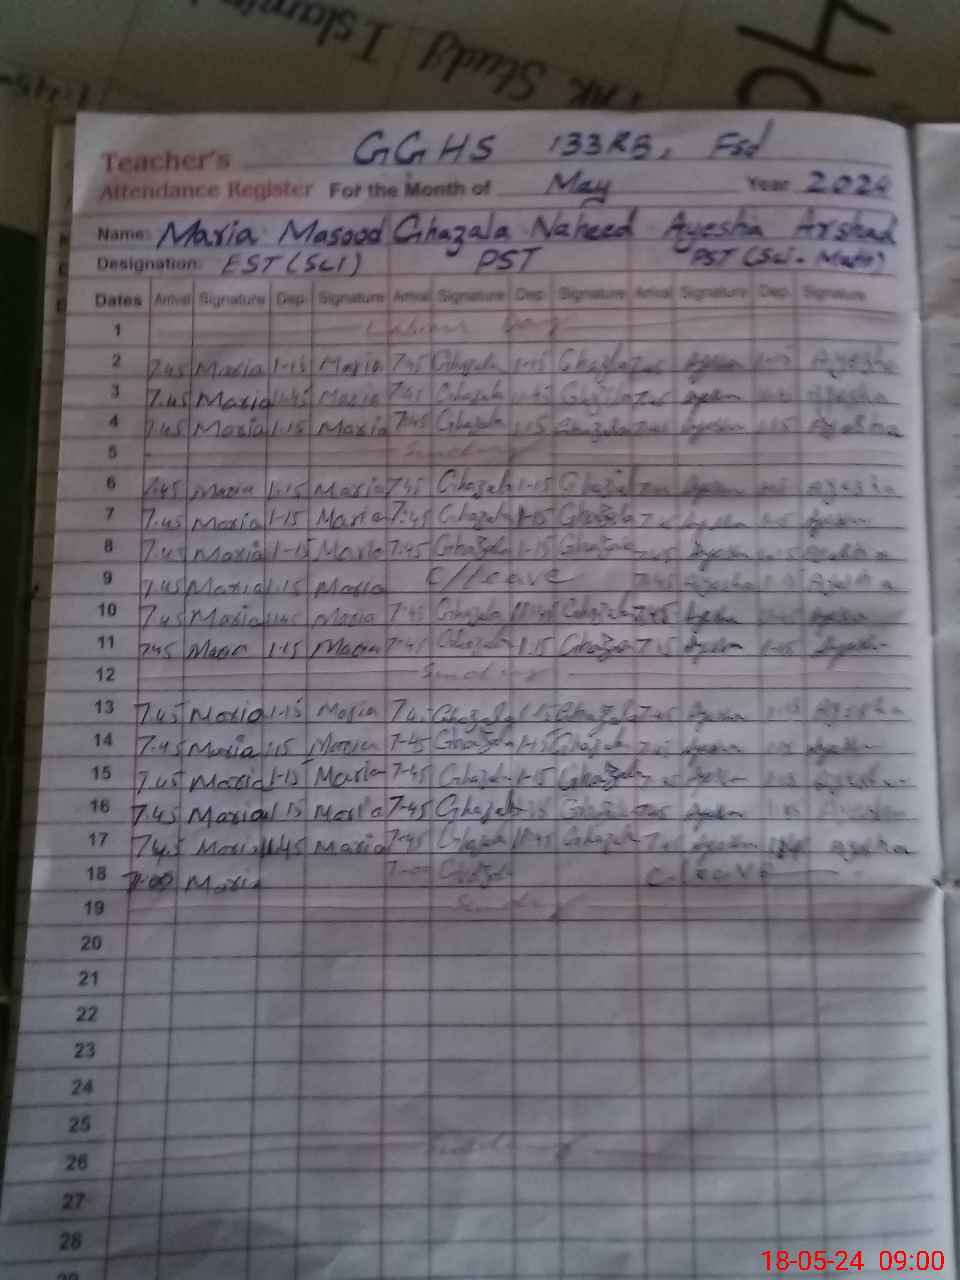 Pak Study Islami
1-45
Teacher's GGHS 133RB, Fsd
Attendance Register For the Month of May Year 2024
Name: Maria Masood Ghazala Naheed Ayesha Arshad
Designation: EST (Sci) PST PST (Sci-Math)
Dates Arrival Signature Dep. Signature Arrival Signature Dep. Signature Arrival Signature Dep. Signature
1 Labour Day
2 7.45 Maria 1-15 Maria 7.45 Ghazala 1-15 Ghazala 7.45 Ayesha Ayesha
3 7.45 Maria Maria 7.45 Ghazala Ghazala Ayesha Ayesha
4 7.45 Maria 1.15 Maria 7.45 Ghazala 1.15 Ghazala Ayesha 1.15 Ayesha
5 Sunday
6 7.45 Maria 1.15 Maria 7.45 Ghazala 1-15 Ghazala Ayesha Ayesha
7 7.45 Maria 1-15 Maria 7.45 Ghazala 1-15 Ghazala Ayesha Ayesha
8 7.45 Maria 1-15 Maria 7.45 Ghazala 1-15 Ghazala 7.45 Ayesha Ayesha
9 7.45 Maria 1.15 Maria C/leave 7.45 Ayesha Ayesha
10 7.45 Maria Maria 7.45 Ghazala Ghazala 7.45 Ayesha Ayesha
11 7.45 Maria 1.15 Maria 7.45 Ghazala 1.15 Ghazala 7.45 Ayesha Ayesha
12 Sunday
13 7.45 Maria 1-15 Maria 7.45 Ghazala 1.15 Ghazala 7.45 Ayesha Ayesha
14 7.45 Maria 1.15 Maria 7-45 Ghazala 1-15 Ghazala Ayesha Ayesha
15 7.45 Maria 1-15 Maria 7-45 Ghazala 1-15 Ghazala Ayesha Ayesha
16 7.45 Maria 1.15 Maria 7-45 Ghazala Ghazala Ayesha
17 7.45 Maria 11.45 Maria 7-45 Ghazala 11.45 Ghazala Ayesha Ayesha
18 7.00 Maria 7-00 Ghazala C-leave
19 Sunday
20
21
22
23
24
25
26 Sunday
27
28
29
18-05-24 09:00